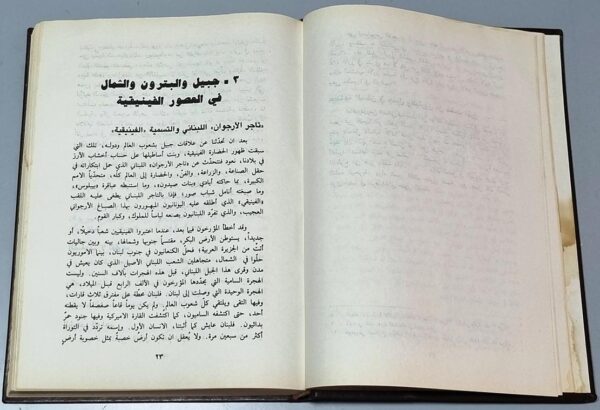 ٣ - جبيل والبترون والشمال
في العصور الفينيقية
«تاجر الأرجوان» اللبناني والتسمية «الفينيقية»
بعد ان تحدّثنا عن علاقات جبيل بشعوب العالم ودوله، تلك التي
سبقت ظهور الحضارة الفينيقية، وبنت أساطيلها على حساب أخشاب الأرز
في بلادنا، نعود فنتحدّث عن «تاجر الأرجوان» اللبناني الذي حمل ابتكاراته في
حقل الصناعة، والزراعة، والفنّ، والحضارة إلى العالم كلّه، متحدّياً الأمم
الكبيرة، بما حاكته أيادي «بنات صيدون»، وما استنبطه عباقرة «بيبلوس»،
وما صبغته أنامل شباب صور؛ فإذا بالتاجر اللبناني يطغى عليه اللقب
«الفينيقي» الذي أطلقه عليه اليونانيون المبهورون بهذا الصباغ الأرجواني
العجيب، والذي تفرّد اللبنانيون بصنعه لباساً للملوك، وكبار القوم.
وقد أخطأ المؤرخون فيما بعد، عندما اعتبروا الفينيقيين شعباً دخيلاً، أو
جديداً، يستوطن الأرض البكر، مقتسماً جنوبها وشمالها، بينه وبين جاليات
أتت من الجزيرة العربية؛ فحلّ الكنعانيون في جنوب لبنان، بينما الاموريون
حلّوا في الشمال، متجاهلين الشعب اللبناني الأصيل الذي كان يعيش في
مدن وقرى هذا الجبل اللبناني، قبل هذه الهجرات بآلاف السنين. وليست
الهجرة السامية التي يحدّدها المؤرخون في الألف الرابع قبل الميلاد، هي
الهجرة الوحيدة التي وصلت إلى لبنان. فلبنان محطّة على مفترق ثلاث قارات،
وفيها التقى ويلتقي كلّ شعوب العالم. ولم يكن يوماً قاعاً صفصفاً لا يقطنه
أحد، حتى اكتشفه الساميون، كما اكتشفت القارة الاميركية وفيها جنود حمر
بدائيون. فلبنان عايش كما أثبتنا، الانسان الأول. وإسمه تردّد في التوراة
أكثر من سبعين مرة. ولا يُعقل ان تكون أرضٌ خصبةٌ بمثل خصوبة أرض
٢٣